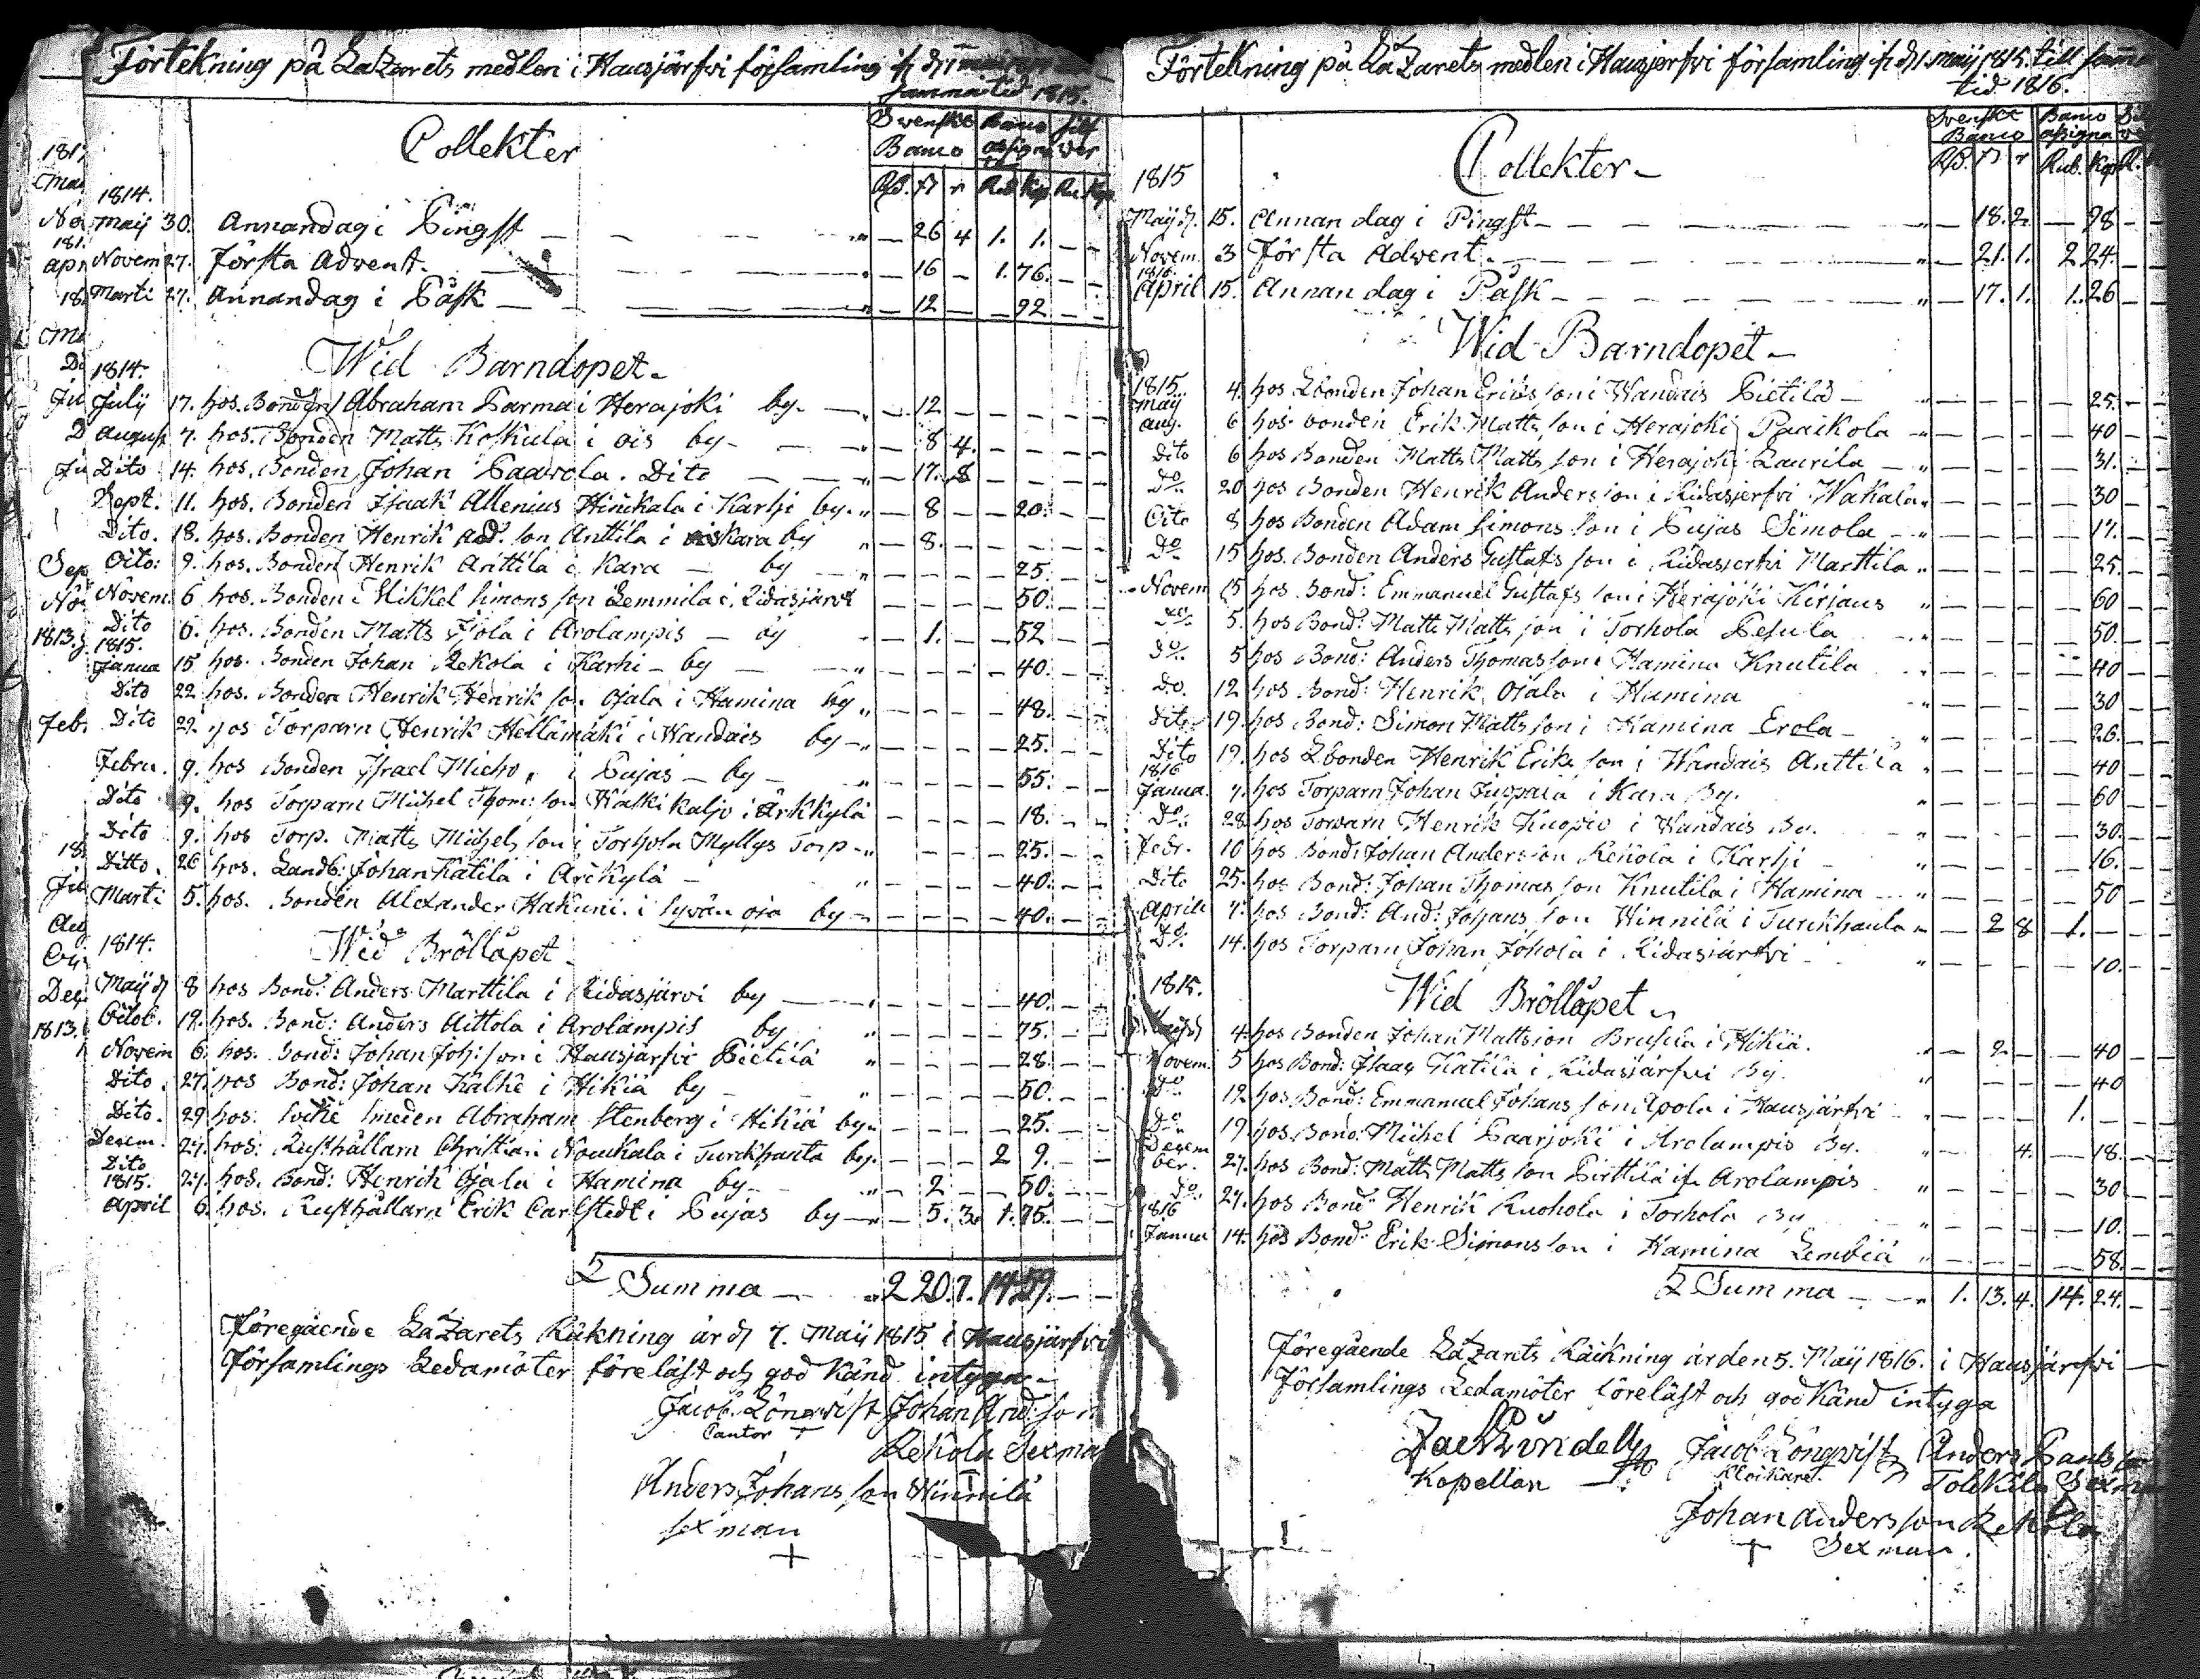 Förtekning på LaZarets medlen i Hausjärfwi församling
samma tid 1815.
Collekter
Swenske Banco
Banco assigna
Rd. ß r Rub Kop Ru Kop
1814.
Maij 30. Annandag i Pingst — 26 4 1. 1. — —
Novem 27. Första Adwent. — 16 — 1. 76. — —
Marti 27. Annandag i Påsk — 12 — — 92 — —
Wid Barndopet.
1814.
July 17. hos. Bonden Abraham Parma i Herajoki by. — 12 — — — — —
August 7. hos. Bonden Matts Koskula i ois by — 8 4. — — — —
Dito 14. hos. Bonden Johan Paavola. Dito — 17. 8 — — — —
Sept. 11. hos. Bonden Isaak Allenius Hinckala i Karhi by. — 8 — — 20. — —
Dito. 18. hos. Bonden Henrik And. son Anttila i Kara by — 8. — — — — —
Octo: 9. hos. Bonden Henrik Anttila i Kara — by — — — — 25. — —
Novem 6 hos. Bonden Mikkel Simons son Lemmila i Ridasjärvi — — — — 50. — —
Dito 6. hos. Bonden Matts Ojola i Arolampis — by — 1. — — 52 — —
1815.
Janua 15 hos. Bonden Johan Rekola i Karhi — by — — — — 40. — —
Dito 22 hos. Bonden Henrik Henrik son Ojala i Hamina by — — — — 48. — —
Dito 22. hos Torparn Henrik Hellämäki i Wandais by — — — — 25. — —
Febru. 9. hos Bonden Israel Micho i Pujas — by — — — — 55. — —
Dito 9. hos Torparn Michel Thom: son Kalki kaljo i Ärkkylä — — — — 18. — —
Dito 9. hos Torp. Matts Michels son i Torhola Myllys Torp — — — — 25. — —
Ditto. 26 hos. Landb: Johan Katila i Ärkylä — — — — 40. — —
Marti 5. hos. Bonden Alexander Hakuni. i Sywän oja by — — — — 40. — —
1814. Wid Bröllåpet
Maij d 8 hos Bond: Anders Marttila i Ridasjärvi by — — — — 40. — —
Octob. 19. hos. Bond: Anders Aittola i Arolampis by — — — — 75. — —
Novem 6. hos. Bond: Johan Joh: son i Hausjärfvi Pietilä — — — — 28. — —
Dito. 27. hos Bond: Johan Kalke i Hikiä by — — — — 50. — —
Dito. 29 hos. Socke smeden Abraham Stenberg i Hikiä by. — — — — 25. — —
Decem. 27. hos. Rusthållarn Christian Noukala i Turckhauta by. — — — 2 9. — —
Dito 27. hos. Bond: Henrik Ojala i Hamina by — 2 — — 50. — —
1815.
April 6. hos. Rusthållarn Erik Carlstedt i Pujas by — 5. 3. 1. 95. — —
Summa — 2 20. 7. 14 59. — —
Föregående LaZarets Räkning är d 7. Maij 1815 i Hausjärfvi
Församlings Ledamöter föreläst och god Känd intyga —
Jacob Lönqvist Johan And: son
Cantor Rekola Sexma
Anders Johans son Winnilä
sexman
+
Förtekning på LaZarets medlen i Hausjerfvi församling if d 1. maij 1815. till samma
tid 1816.
Collekter —
Svenske Banco
Banco assigna
Rd. ß r Rub. Kop R.
1815
Maij d. 15. Annan dag i Pingst — 18. 2. — 98 — —
Novem. 3 Första Adwent. — 21. 1. 2 24. — —
1816.
April 15. Annan dag i Påsk — 17. 1. 1. 26 — —
Wid Barndopet —
1815.
Maij 4. hos Lbonden Johan Erics son i Wandais Pietilä — — — — 25. —
aug. 6 hos bonden Erik Matts son i Herajoki Paaikola — — — — 40 —
Dito 6 hos Bonden Matts Matts son i Herajoki Laurila — — — — 31. —
Do 20 hos Bonden Henrik Anders son i Ridasjerfvi Wakala — — — — 30 —
Octo 8 hos Bonden Adam Simons son i Pujas Simola — — — — 17. —
Do 15 hos. Bonden Anders Gustafs son i Ridasjerfvi Marttila — — — — 25. —
Novem 15 hos Bond: Emmanuel Gustafs son i Herajoki Kirjaus — — — — 60 —
Do 5. hos Bond: Matts Matts son i Torhola Pesula — — — — 50. —
Do 5 hos Bond: Anders Thomas son i Hamina Knutila — — — — 40 —
Do. 12 hos Bond: Henrik Ojala i Hamina — — — — 30 —
Dito 19. hos Bond: Simon Matts son i Hamina Erola — — — — 26. —
Dito 19. hos Lbonden Henrik Eriks son i Wandais Anttila — — — — 40 —
1816
Janua. 7. hos Torparn Johan i Kara By. — — — — 60 —
Do 28. hos Torparn Henrik Kuopio i Wandais By. — — — — 30. —
Febr. 10 hos Bond: Johan Andersson Rekola i Karhi — — — — 16. —
Dito 25. hos Bond: Johan Thomas son Knutila i Hamina — — — — 50 —
April 7. hos Bond: And: Johans son Winnilä i Turckhauta — 2 8 1. — —
Do 14. hos Torparn Johan Johola i Ridasjärfvi — — — — 10. —
1815. Wid Bröllåpet
4. hos Bonden Johan Mattsson Brusila i Hikiä. — 2 — — 40 —
Novem. 5 hos Bond: Isaac Katila i Ridasjärfvi By. — — — — 40 —
Do 12 hos Bond: Emmanuel Johans son Apola i Hausjärfvi — — — 1. — —
Do 19 hos Bond: Michel Paarjoki i Arolampis By. — — 4. — 18. —
Decem ber. 27. hos Bond: Matts Matts son Pirttilä if. Arolampis — — — — 30 —
Do. 27. hos Bond: Henrik Ruohola i Torhola By — — — — 10. —
1816
Janua 14. hos Bond: Erik Simons son i Hamina Lembiä — — — — 58. —
Summa — 1. 13. 4. 14. 24. —
Föregående LaZarets Räkning är den 5. Maij 1816. i Hausjärfvi —
Församlings Ledamöter föreläst och god Känd intyga
Jac Lindell Jacob Lönqvist Anders Pauls son
Kapellan Klockaret. Tolkkila Sexman
Johan anders son Rekola
+ Sexman.